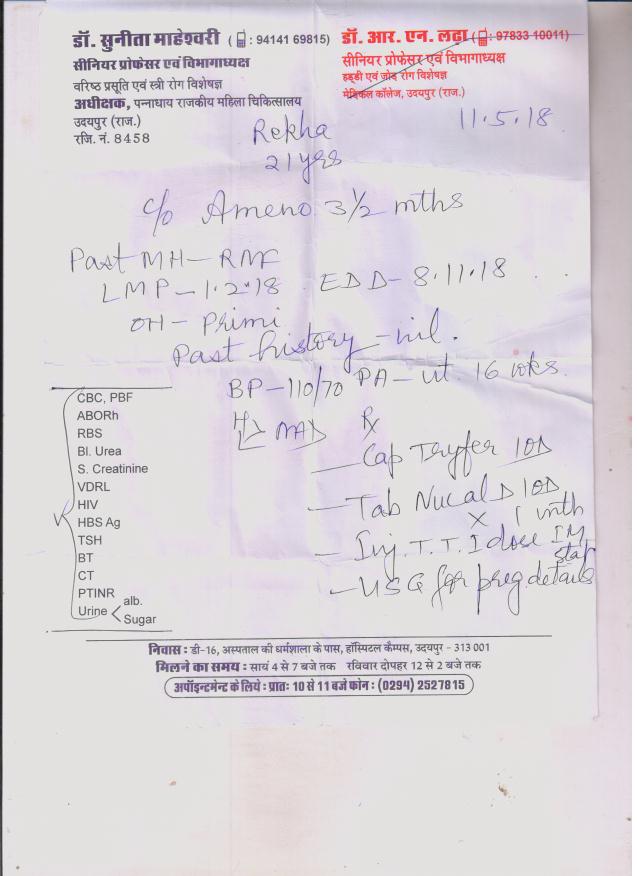 डॉ. सुनीता माहेश्वरी ( : 94141 69815)
सीनियर प्रोफेसर एवं विभागाध्यक्ष
वरिष्ठ प्रसूति एवं स्त्री रोग विशेषज्ञ
अधीक्षक, पन्नाधाय राजकीय महिला चिकित्सालय
उदयपुर (राज.)
रजि. नं. 8458
डॉ. आर. एन. लढ़ा ( : 97833 10011)
सीनियर प्रोफेसर एवं विभागाध्यक्ष
हड्डी एवं जोड़ रोग विशेषज्ञ
मेडिकल कॉलेज, उदयपुर (राज.)
11.5.18
Rekha
21 yrs
c/o Ameno 3½ mths
Past MH - RMF
LMP - 1.2.18 EDD - 8.11.18
OH - Primi
Past history - nil.
BP - 110/70 PA - ut. 16 wks.
H/L NAD Rx
CBC, PBF
ABORh
RBS
Bl. Urea
S. Creatinine
VDRL
HIV
HBS Ag
TSH
BT
CT
PTINR
Urine < alb.
Sugar
- Cap 1OD
- Tab Nucal D 1OD
x 1 mth
- Inj. T.T. I dose IM
stat
- USG for preg. details
निवास : डी-16, अस्पताल की धर्मशाला के पास, हॉस्पिटल कैम्पस, उदयपुर - 313 001
मिलने का समय : सायं 4 से 7 बजे तक रविवार दोपहर 12 से 2 बजे तक
अपॉइन्टमेन्ट के लिये : प्रातः 10 से 11 बजे फोन : (0294) 2527815